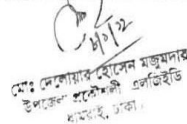 মোঃ দেলোয়ার হোসেন মজুমদার
উপজেলা প্রকৌশলী এলজিইডি
ধামরাই, ঢাকা।